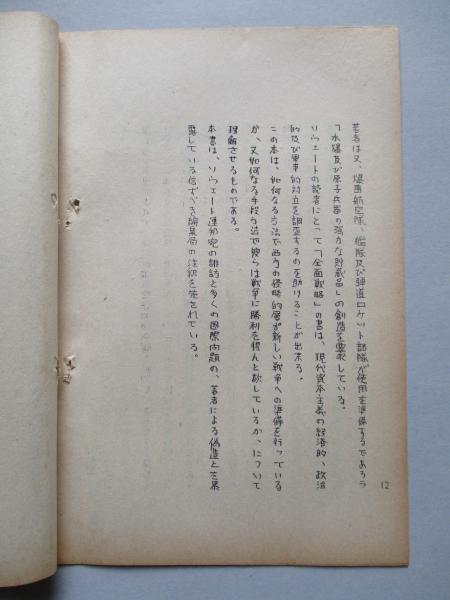 著者は又、爆撃航空隊、艦隊及び弾道ロケット部隊が使用を準備するであろう
「水爆及び原子兵器の強力な貯蔵品」の創造を要求している。
ソヴェートの読者にとって「全面戦略」の書は、現代資本主義の経済的、政治
的及び軍事的対立を調査するのを助けることが出来る。
この本は、如何なる方法で西方の侵略的層が新しい戦争への準備を行っている
か、又如何なる手段方法で彼らは戦争に勝利を得んと欲しているか、について
理解させるものである。
本書は、ソヴェート連邦の誹謗と多くの国際問題の、著者による偽造とを暴
露している信ずべき編集局の注釈を
されている。
12